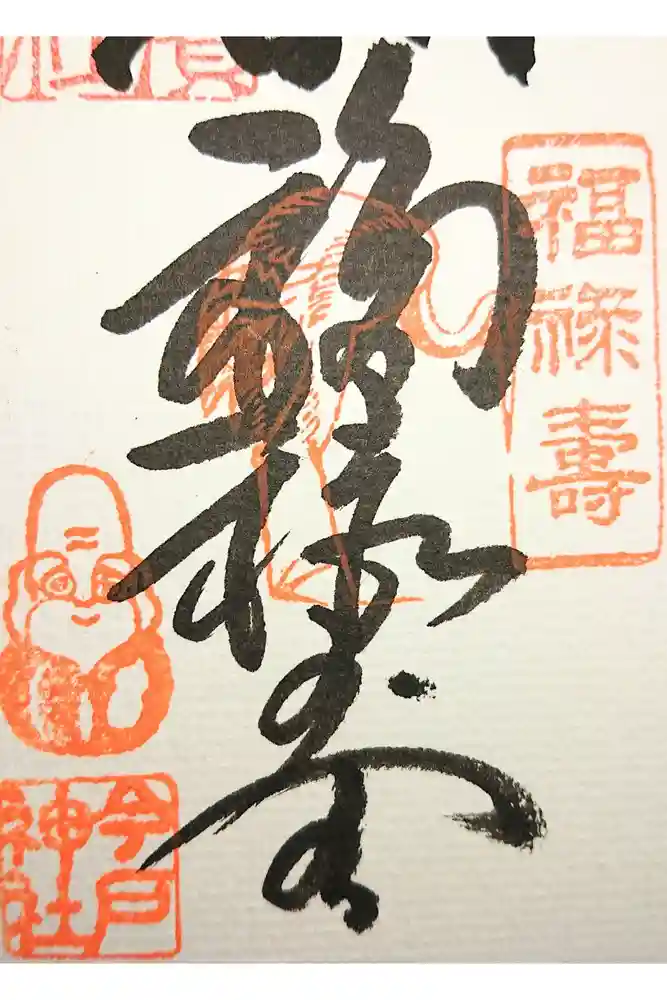 福禄寿
福祿壽
今戸
神社